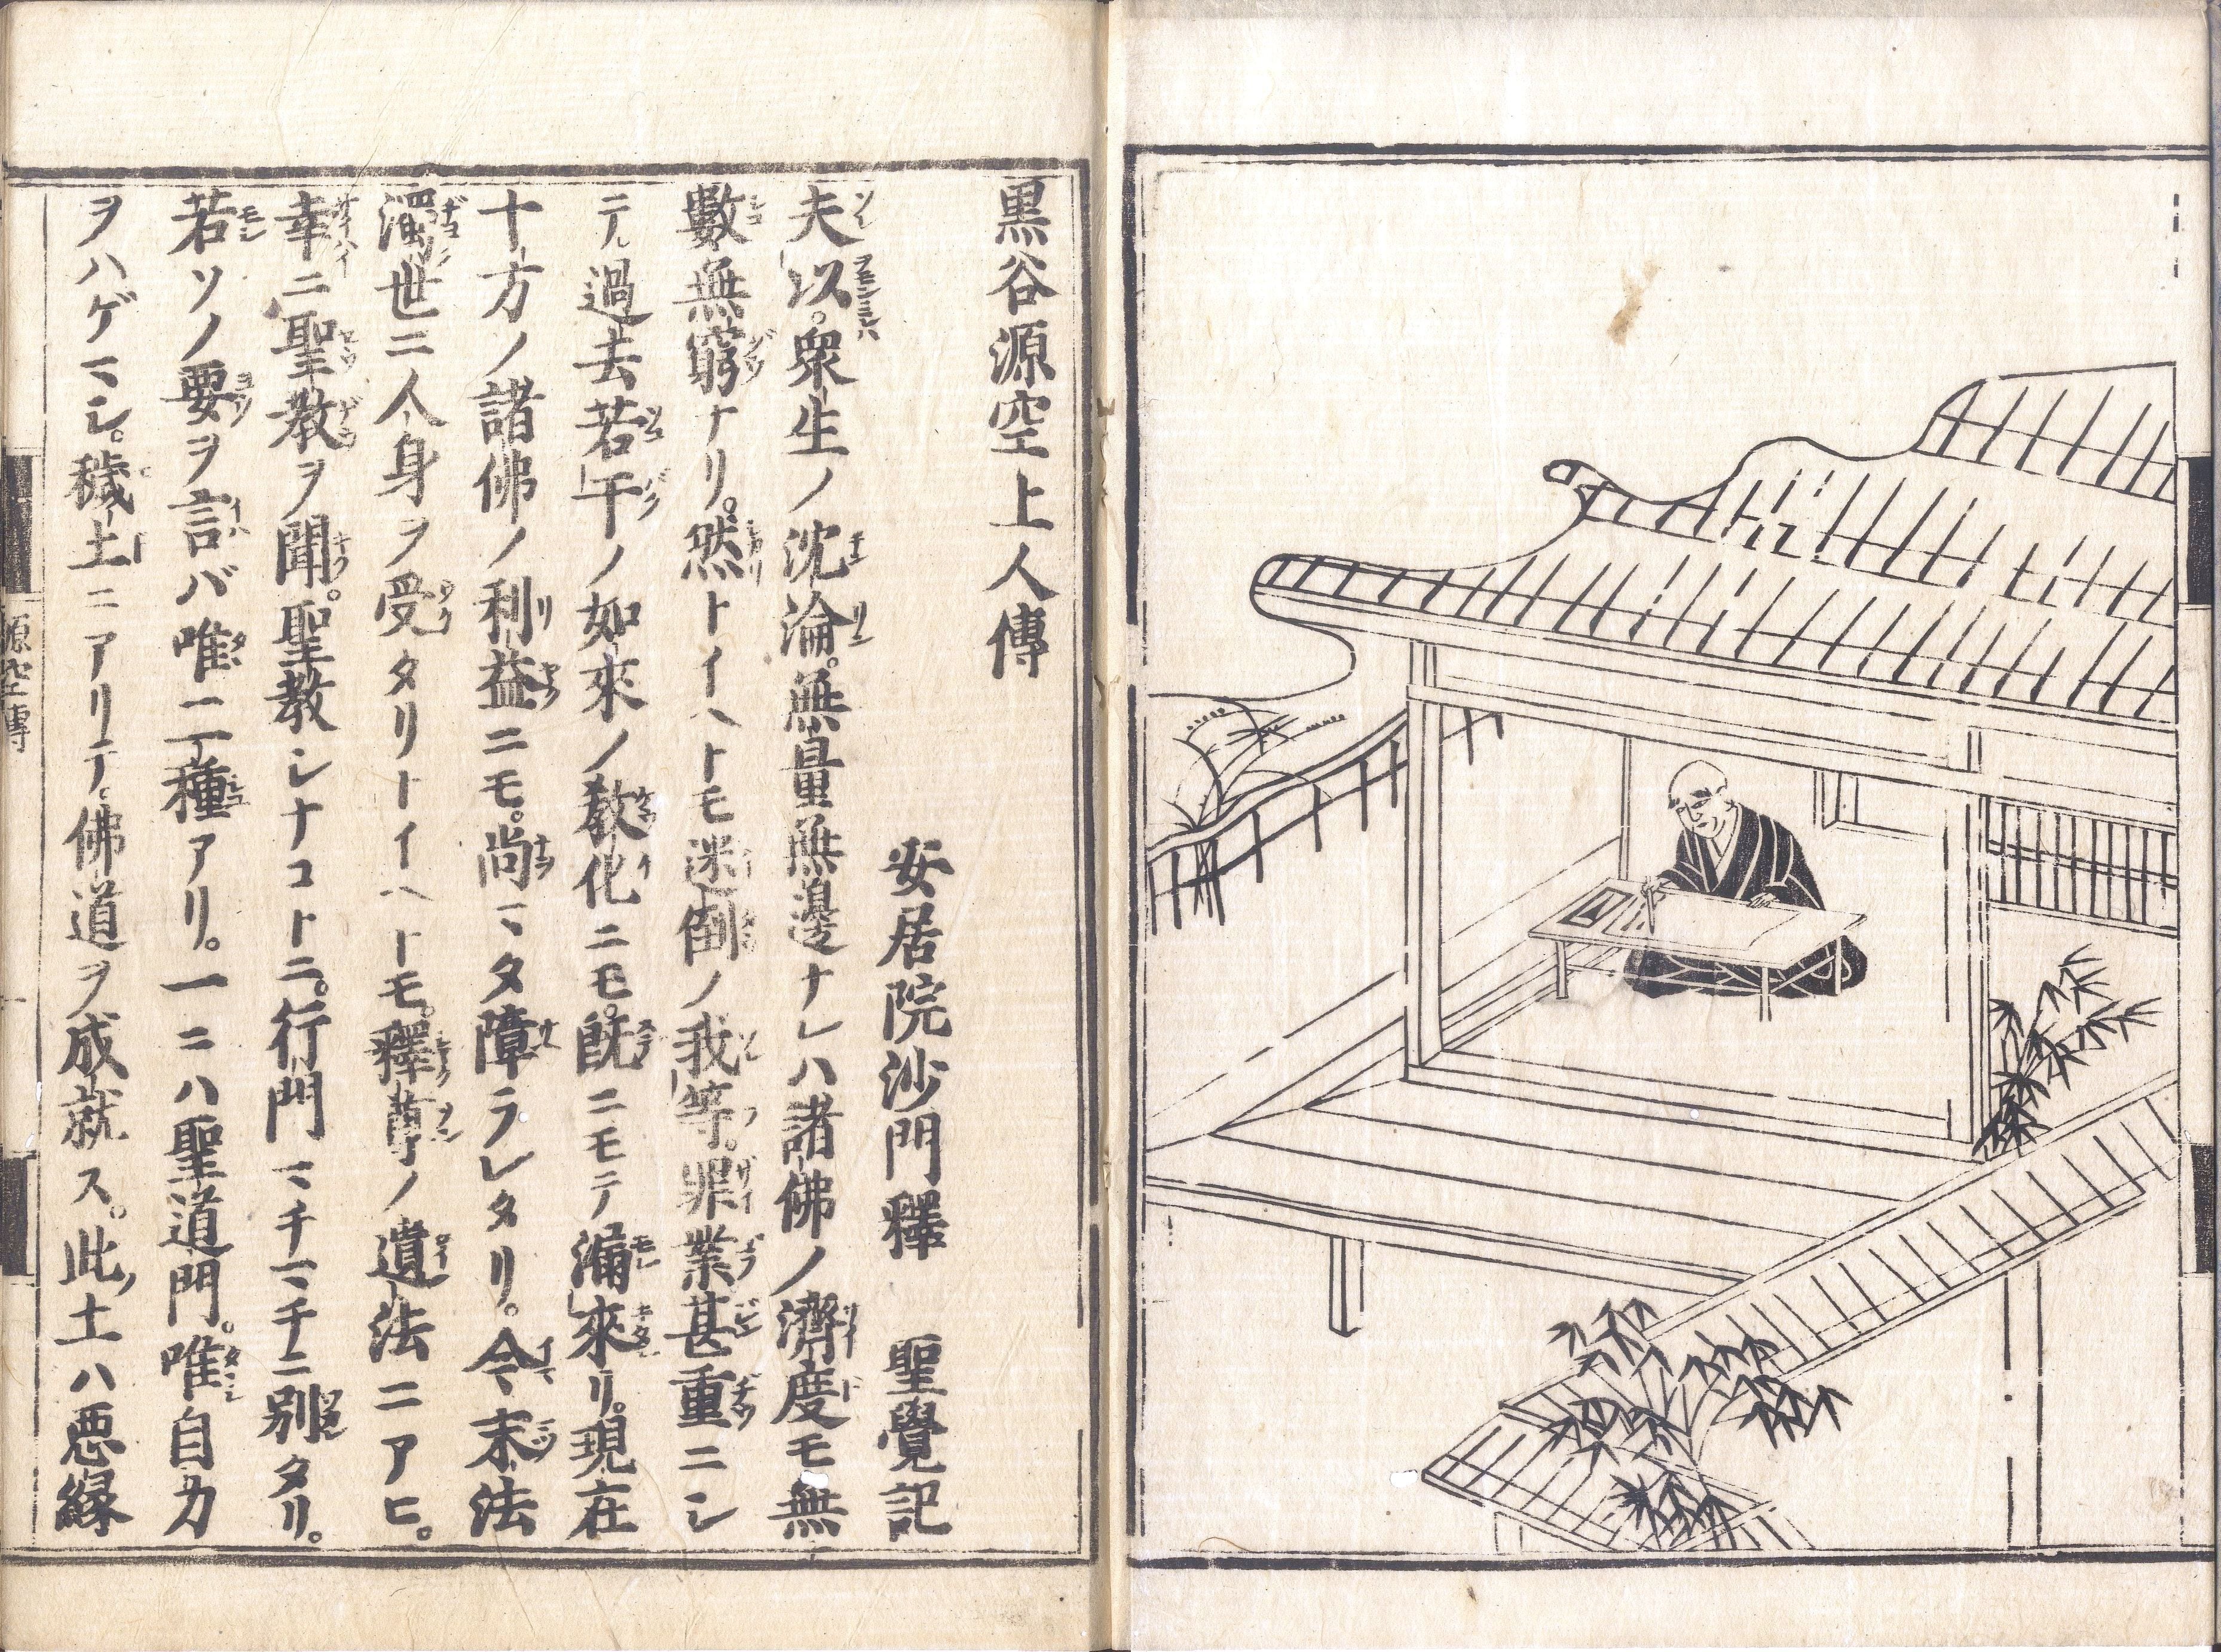 黒谷源空上人傳
安居院沙門釋　聖覺記
夫以。衆生ノ沈淪。無量無邊ナレハ諸佛ノ濟度モ無
數無窮ナリ。然トイヘトモ迷倒ノ我等。罪業甚重ニシ
テ過去若干ノ如來ノ教化ニモ。既ニモテ漏來リ。現在
十方ノ諸佛ノ利益ニモ。尚マタ障ラレタリ。今末法
濁世ニ人身ヲ受タリトイヘトモ。釋尊ノ遺法ニアヒ。
幸ニ聖教ヲ聞。聖教シナコトニ。行門マチマチニ別タリ。
若ソノ要ヲ言バ唯二種アリ。一ニハ聖道門。唯自力
ヲハゲマシ。穢土ニアリテ。佛道ヲ成就ス。此ノ土ハ悪縁
源空傳